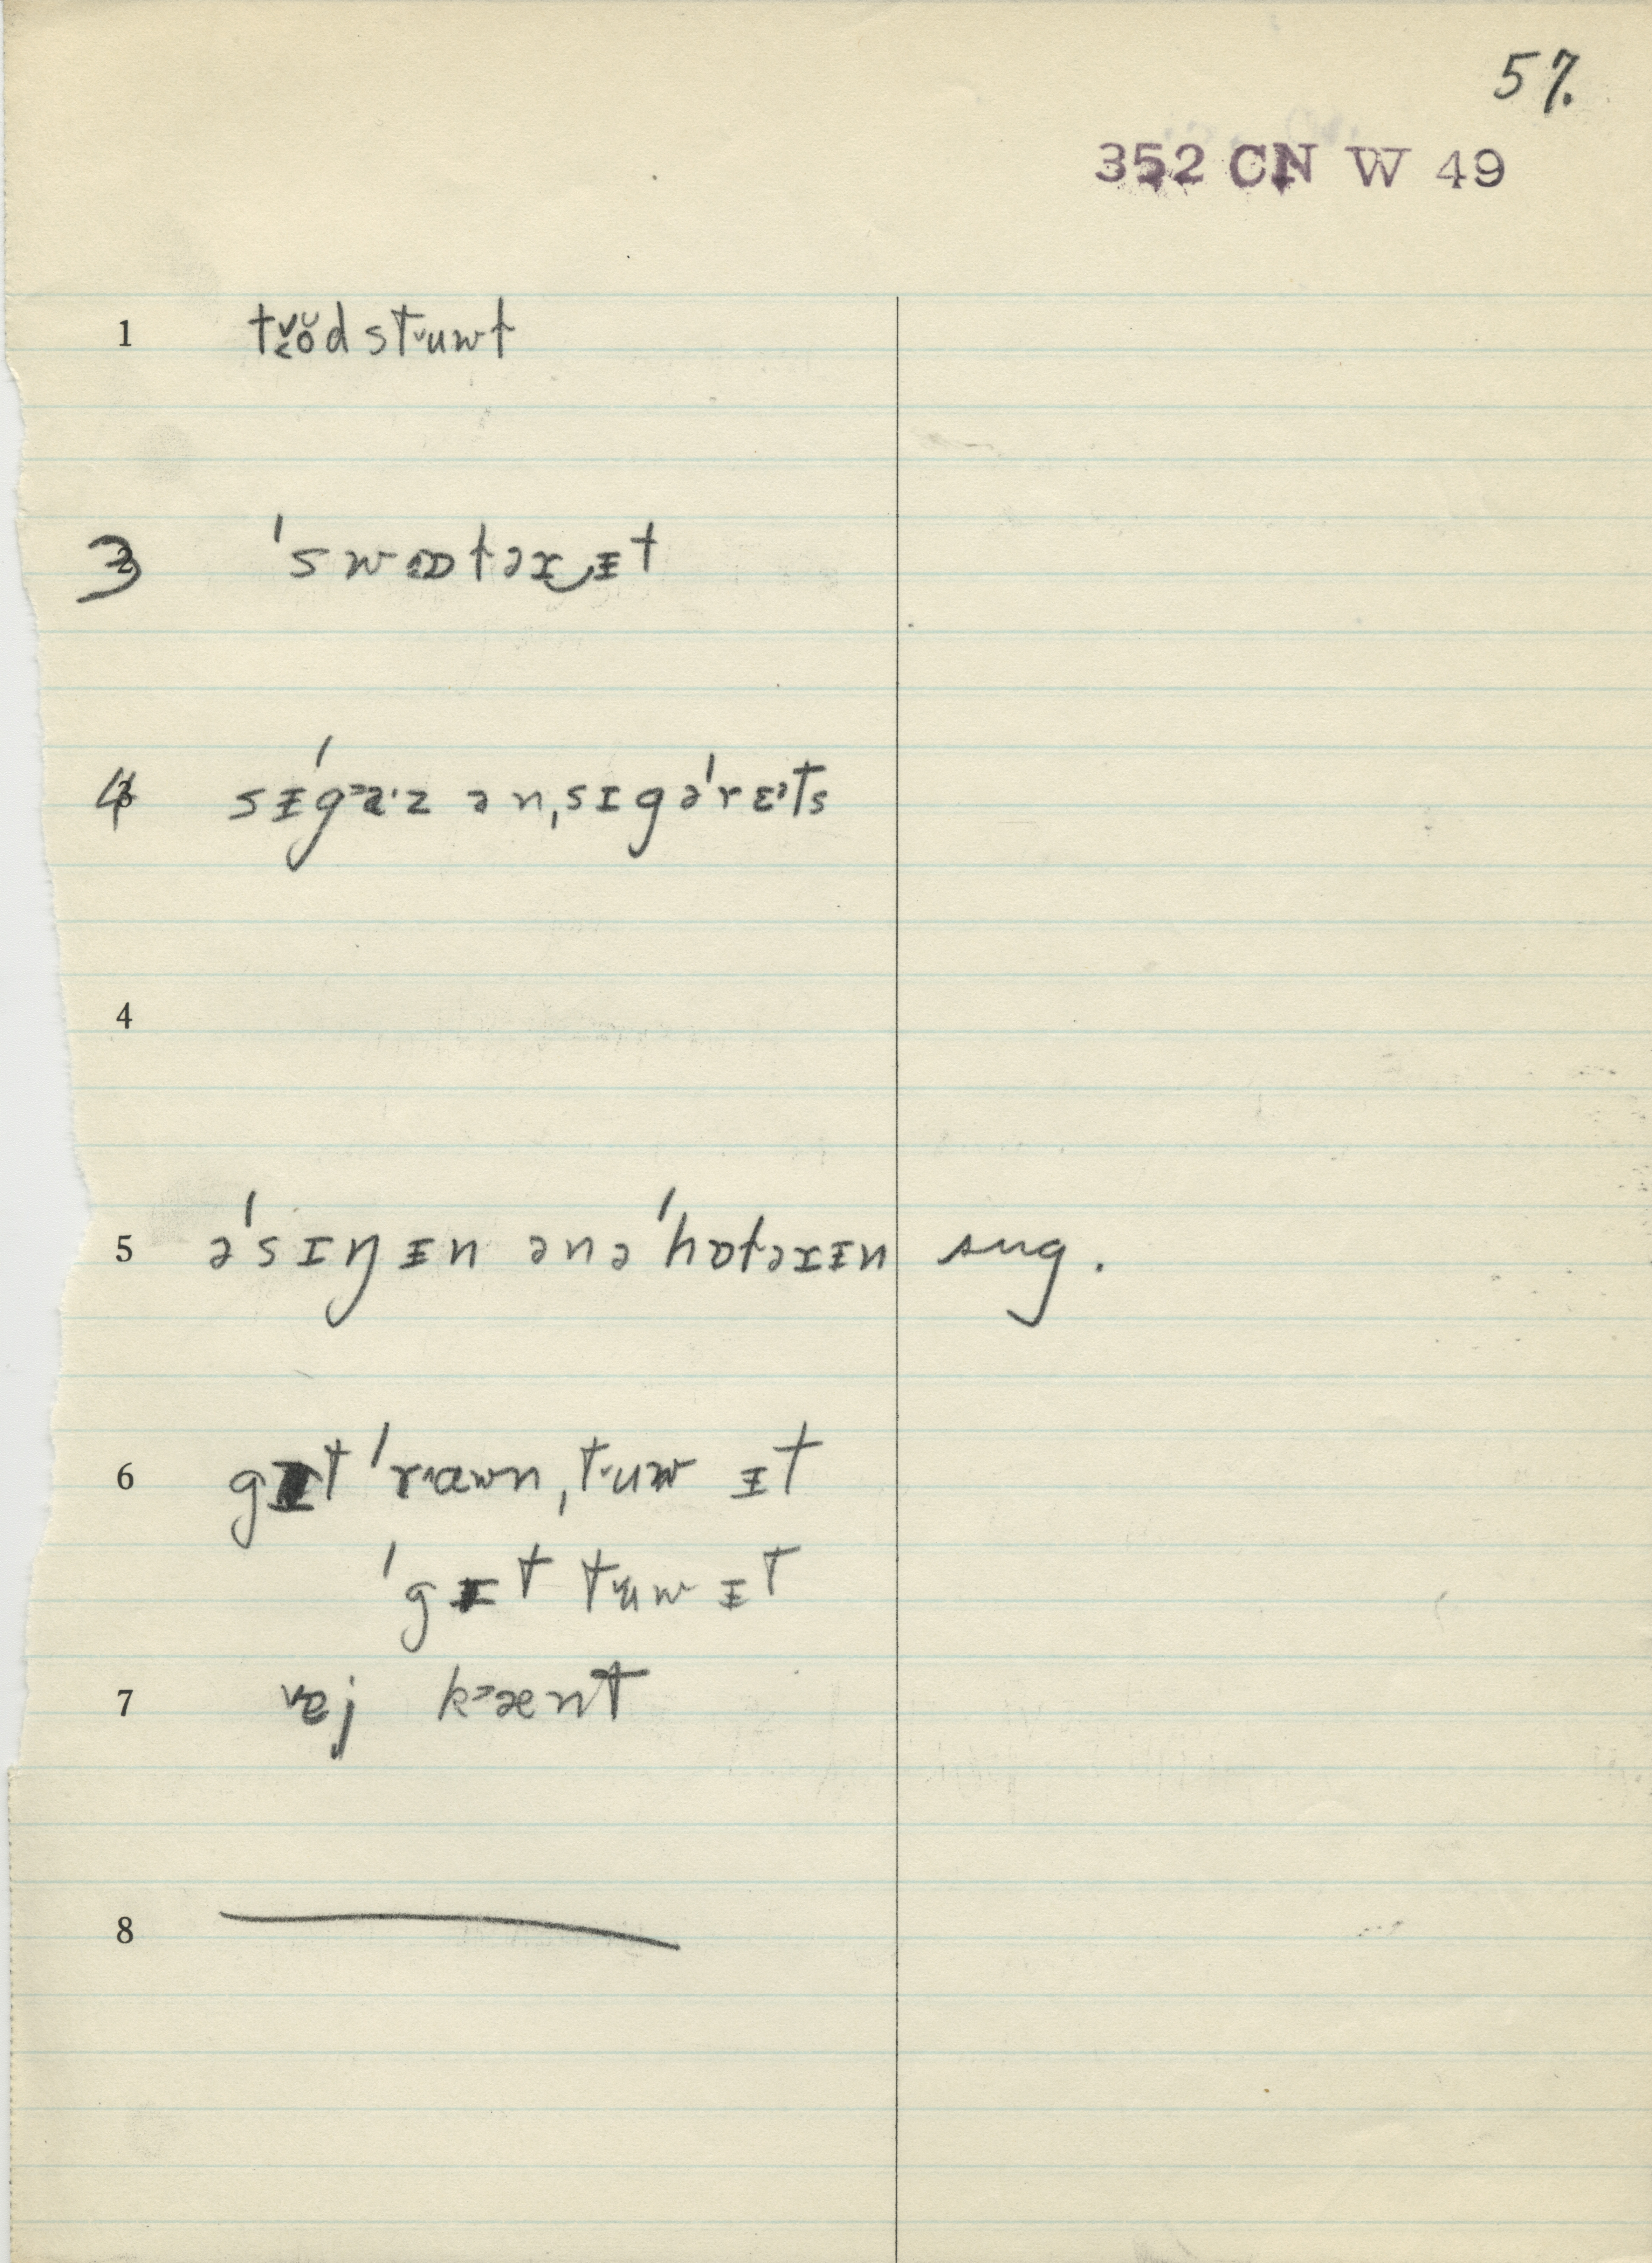 57.
352 CN W 49
1 tɤŏd stᵛuwt
3 'swɒtəɪ ɪt
4 sɪ'gᵊɑˑz ən, sɪgə'rɛᵊts
4
5 ə'sɪŋɪn ənə'hɒtəɪɪn sug.
6 gɪt 'rᵊawn, tᵛuw ɪt
'gɪt tᵛuw ɪt
7 vej kᵊænt
8